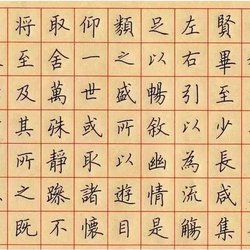 賢畢至少長咸集
左右引以為流觴
足以暢敘幽情是
類之盛所以遊目
仰一世或取諸懷
取舍萬殊靜躁不
將至及其所之既